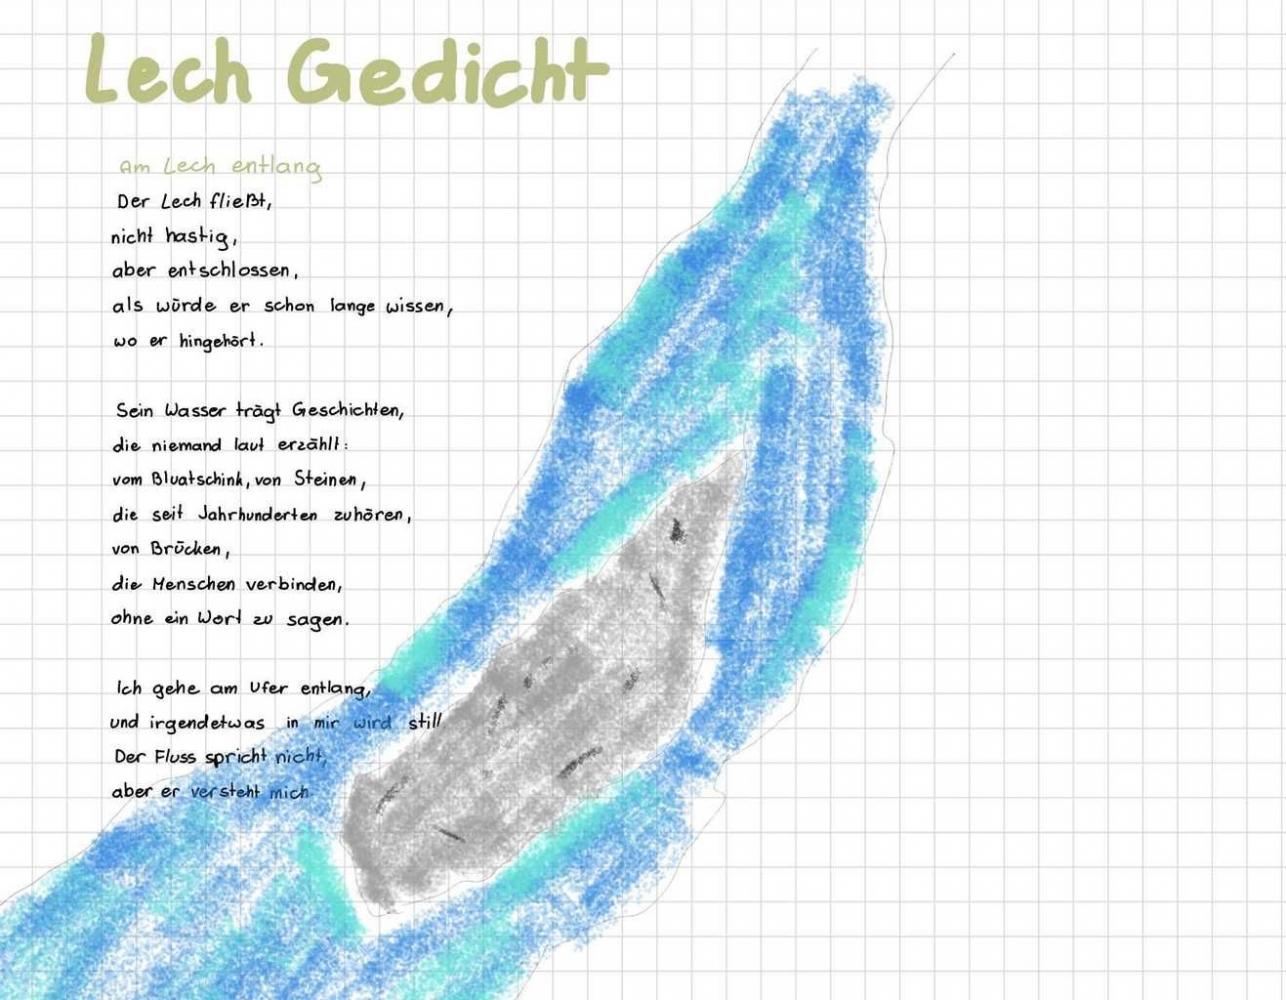 Lech Gedicht
Am Lech entlang
Der Lech fließt,
nicht hastig,
aber entschlossen,
als würde er schon lange wissen,
wo er hingehört.
Sein Wasser trägt Geschichten,
die niemand laut erzählt:
vom Bluatschink, von Steinen,
die seit Jahrhunderten zuhören,
von Brücken,
die Menschen verbinden,
ohne ein Wort zu sagen.
Ich gehe am Ufer entlang,
und irgendetwas in mir wird still
Der Fluss spricht nicht,
aber er versteht mich